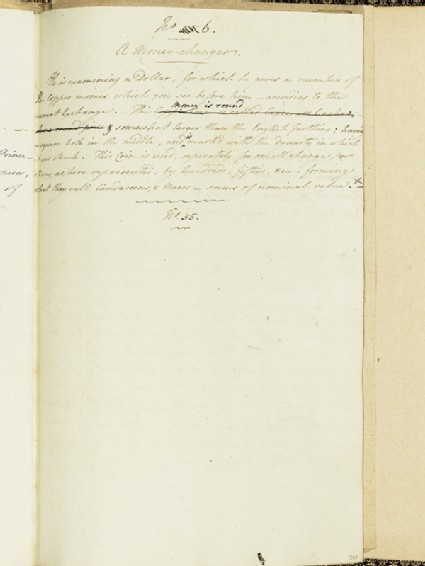 No. 6.
A Money-changer.
He is examining a Dollar, for which he gives a number of
the Copper monies which you see before him — according to the
usual Exchange. — This money is round
& somewhat larger than the English farthing; having
a square hole in the middle, and marked with the dynasty in which
it was struck. This Coin is used, separately, for small change, or
strung, as here represented, by hundreds, fifties, &c. forming
what they call Candareens, & Maces — sums of nominal value.
No. 35.
Prince
of